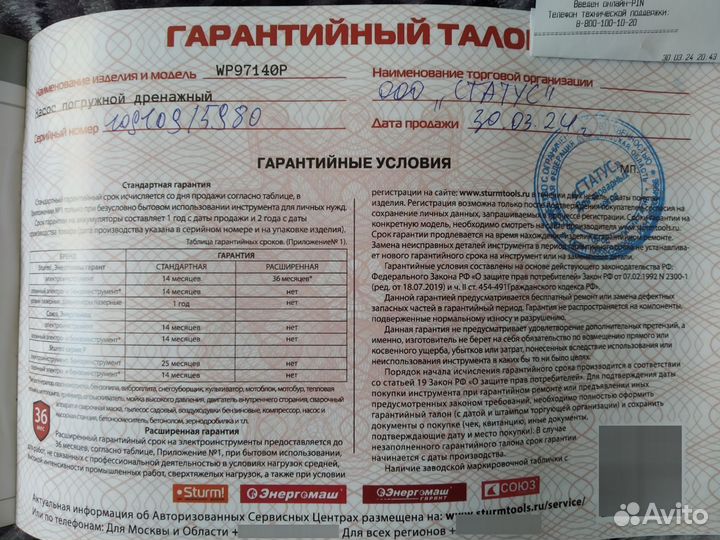 Введен онлайн-PIN
Телефон технической поддержки:
8-800-100-10-20
30.03.24 20:43
ГАРАНТИЙНЫЙ ТАЛОН
Наименование изделия и модель WP97140P
Насос погружной дренажный
Серийный номер 109109/5980
Наименование торговой организации
ООО "СТАТУС"
Дата продажи 30.03.24 г
МП.
"СТАТУС"
ГАРАНТИЙНЫЕ УСЛОВИЯ
Стандартная гарантия
Стандартный гарантийный срок исчисляется со дня продажи согласно таблице, в
Приложении №1 только при безусловно бытовом использовании инструмента для личных нужд.
Срок гарантии на аккумуляторы составляет 1 год с даты продажи и 2 года с даты
производства товара (дата производства указана в серийном номере и на упаковке изделия).
Таблица гарантийных сроков. (Приложение№ 1).
БРЕНД ГАРАНТИЯ
СТАНДАРТНАЯ РАСШИРЕННАЯ
14 месяцев 36 месяцев*
14 месяцев нет
1 год нет
14 месяцев нет
14 месяцев нет
25 месяцев нет
14 месяцев нет
36 мес
Расширенная гарантия
Расширенный гарантийный срок на электроинструменты предоставляется до
36 месяцев, согласно таблице, Приложение №1, при бытовом использовании,
для работ, не связанных с профессиональной деятельностью в условиях нагрузок средней,
высокой интенсивности промышленных работ, сверхтяжелых нагрузок, а также при условии
регистрации на сайте: www.sturmtools.ru в течении двух недель с даты покупки
изделия. Регистрация возможна только после подтверждения покупателем согласия на
сохранение личных данных, запрашиваемых в процессе регистрации. Срок гарантии на
конкретную модель, необходимо смотреть на сайте производителя www.sturmtools.ru.
Срок гарантии продлевается на время нахождения изделия в гарантийном ремонте.
Замена неисправных деталей инструмента в период гарантийного срока не устанавлива-
ет нового гарантийного срока на инструмент или на замененные детали.
Гарантийные условия составлены на основе действующего законодательства РФ:
Федерального Закона РФ «О защите прав потребителей» Закон РФ от 07.02.1992 N 2300-1
(ред. от 18.07.2019) и ч. II ст. 454-491Гражданского кодекса РФ».
Данной гарантией предусматривается бесплатный ремонт или замена дефектных
запасных частей в гарантийный период. Гарантия не распространяется на компоненты,
подверженные нормальному износу и разрушению.
Данная гарантия не предусматривает удовлетворение дополнительных претензий, а
именно, изготовитель не берет на себя обязательства по возмещению прямого или
косвенного ущерба, убытков или затрат, понесенных вследствие использования или
неиспользования инструмента в каких бы то ни было целях.
Порядок начала исчисления гарантийного срока производится в соответствии
со статьей 19 Закон РФ «О защите прав потребителей». Для подтверждения даты
покупки инструмента при гарантийном ремонте или предъявлении иных
предусмотренных законом требований, необходимо полностью оформить
гарантийный талон (с датой и штампом торгующей организации) и сохранить
документы о покупке (чек, квитанцию, иные документы,
подтверждающие дату и место покупки). В случае
незаполненного гарантийного талона срок гарантии
начинается с даты производства.
Наличие заводской маркировочной таблички с
Sturm! Энергомаш Энергомаш ГАРАНТ СОЮЗ
Актуальная информация об Авторизованных Сервисных Центрах размещена на: www.sturmtools.ru/service/
Или по телефонам: Для Москвы и Области + Для всех регионов +
Avito